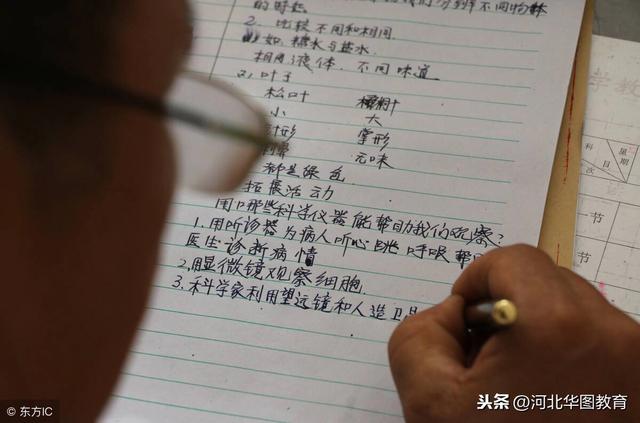 不同物体
的特点
2. 比较不同和相同
(1) 如: 糖水与盐水
相同: 液体. 不同 味道
2) 叶子
松叶
小 大
针形 掌形
无味
都是绿色
拓展活动
用哪些科学仪器能帮助我们观察?
1. 用听诊器为病人听心跳 呼吸 帮
医生诊断病情
2. 用显微镜观察细胞.
3. 科学家利用望远镜和人造卫
学教
星期
科目
节次
一节
二节
© 东方IC
头条 @河北华图教育